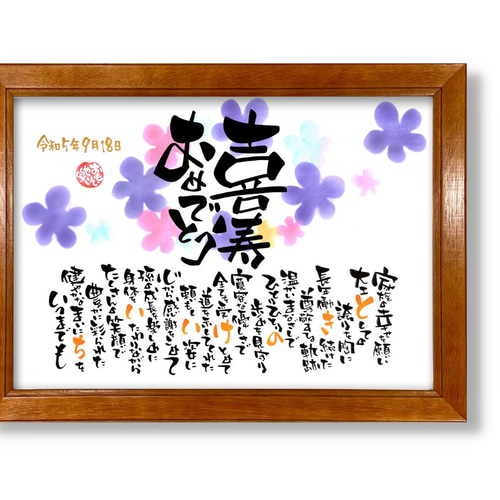 令和5年9月18日
喜寿
おめでとう
家族の幸せを願い
大工としての
誇りを胸に
長年働き続けた
尊敬する軌跡
温かいまなざしで
ひとりひとりの
歩みを見守り
寛容な優しさで
全てを受けとめて
道をひらいてくれた
頼もしい姿に
感謝
孫の成長を楽しみに
身体をいたわりながら
たくさんの笑顔で
豊かに彩られた
健やかなまいにちを
いつまでも